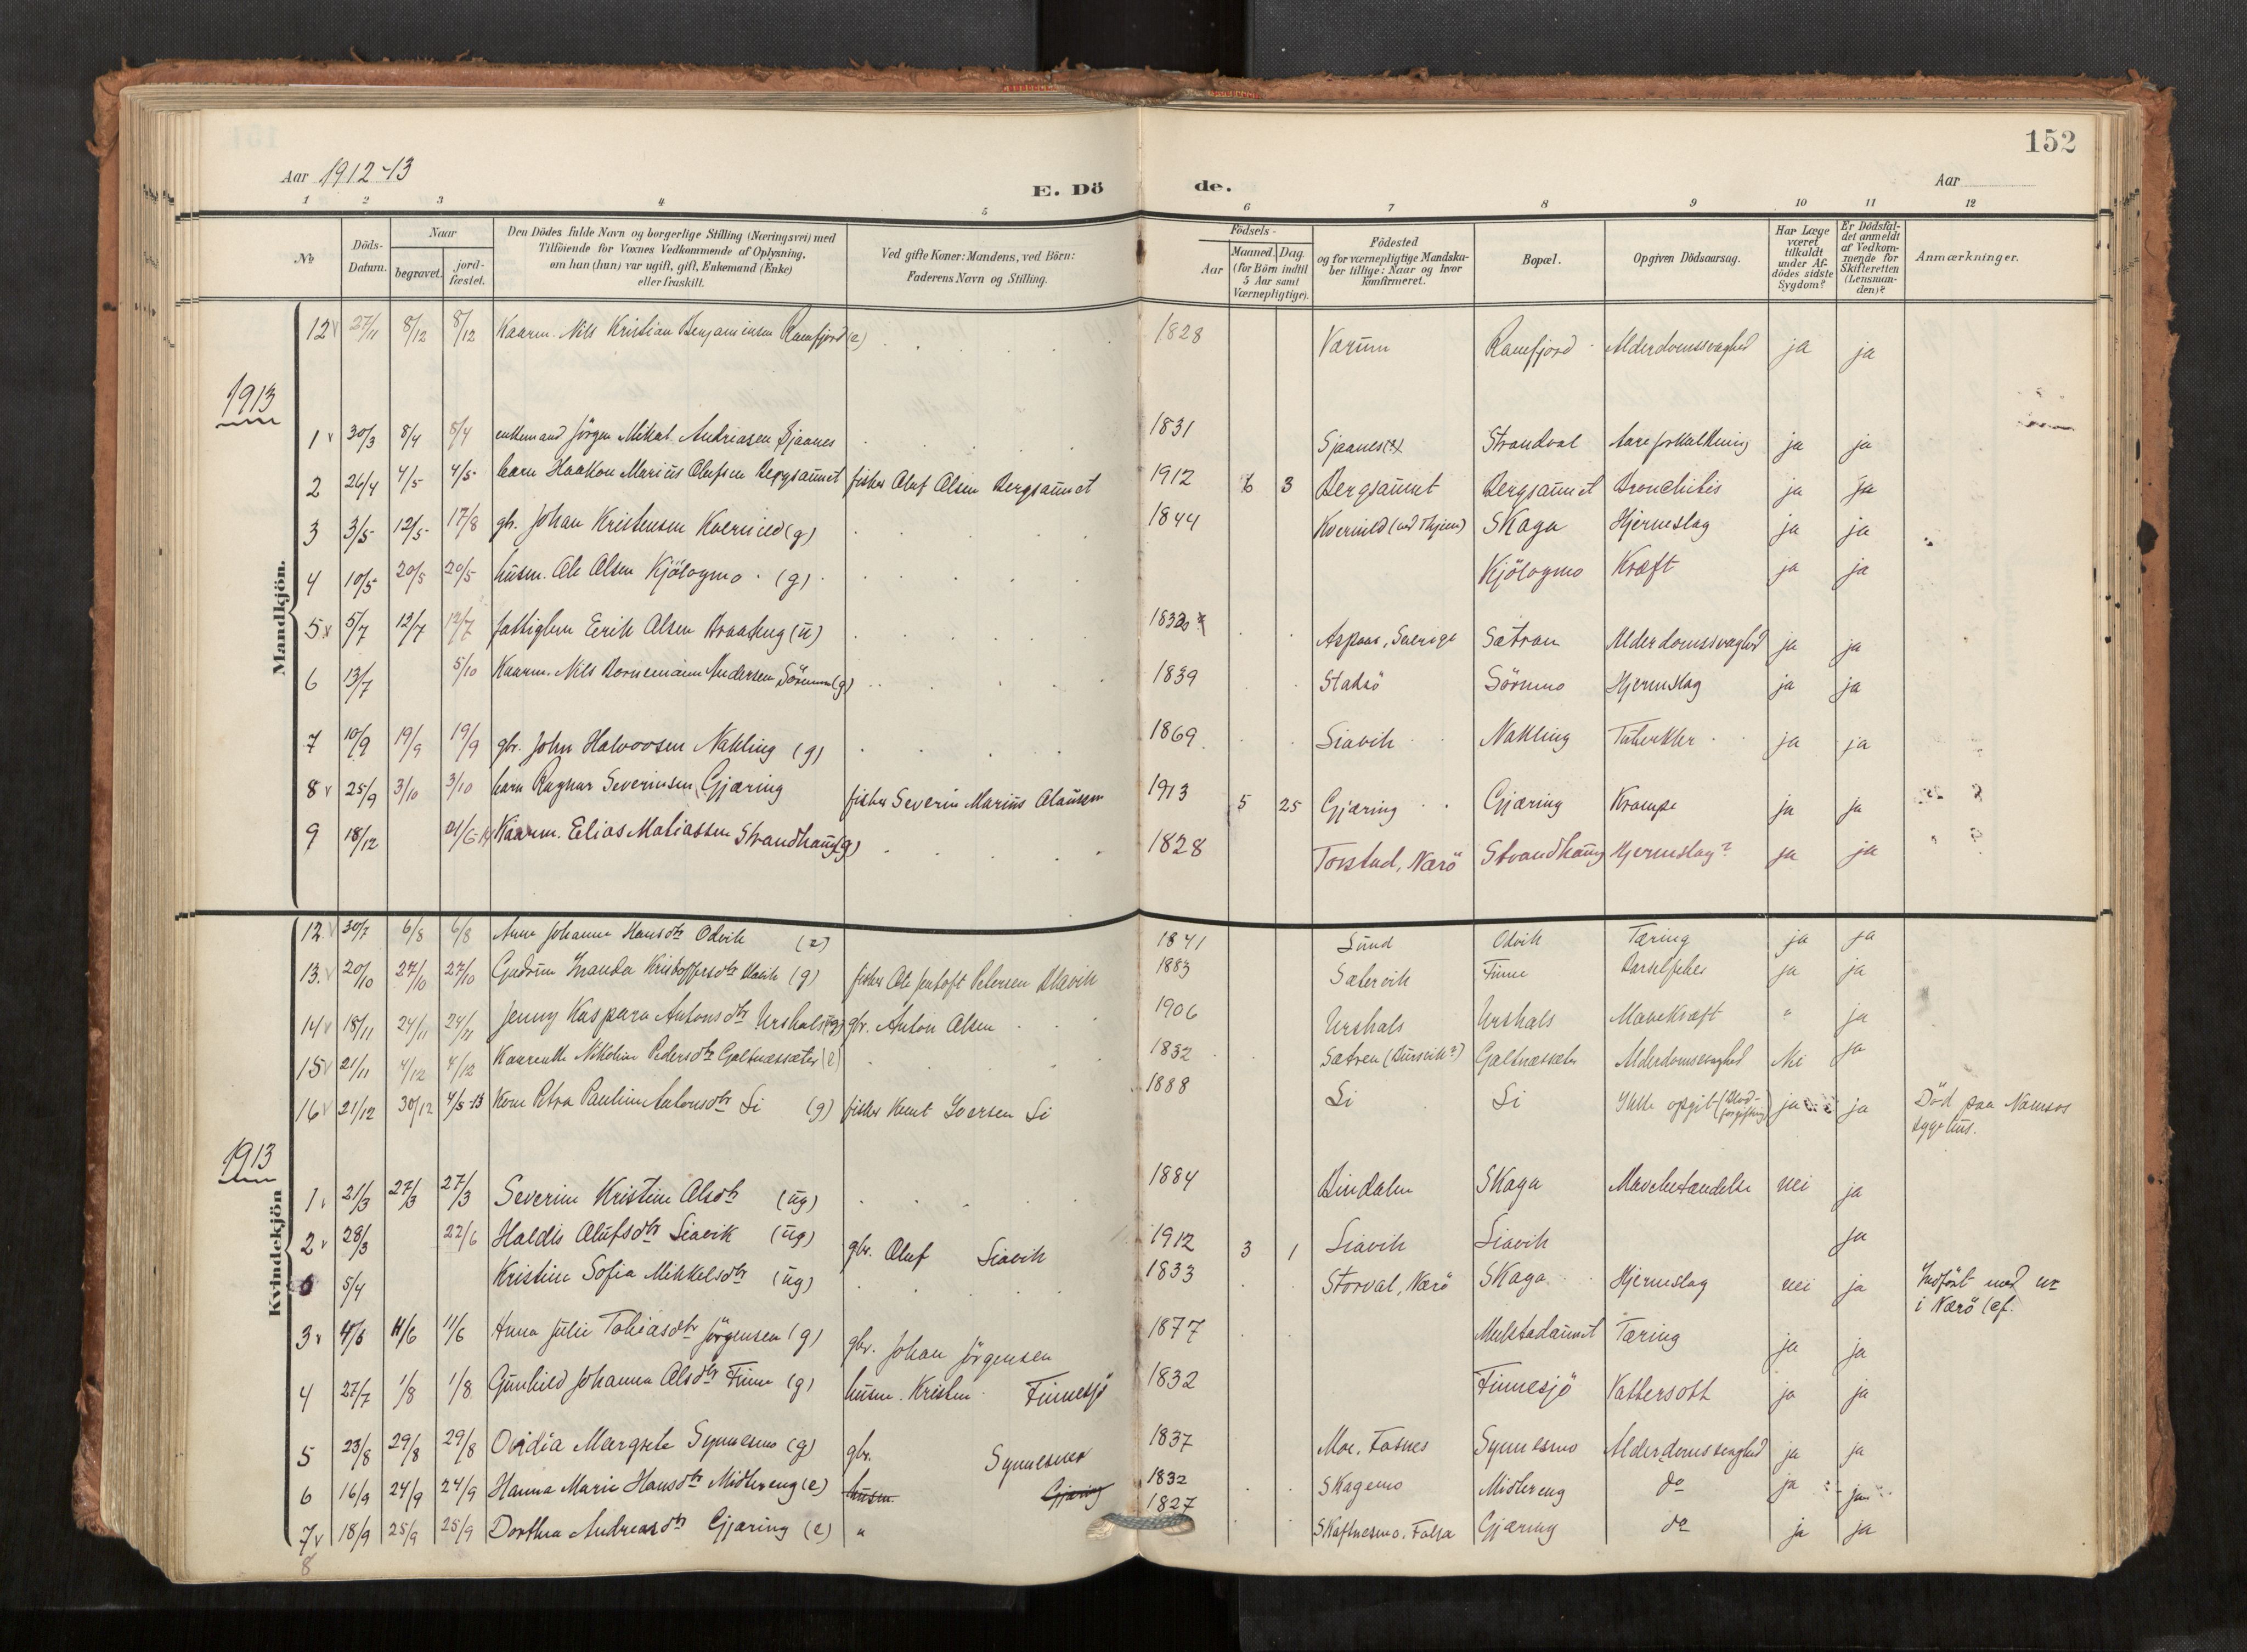 152
Aar 1912-13
E. Dö de.
Aar
1 2 3 4 5 6 7 8 9 10 11 12
No
Döds-Datum.
Naar
begravet.
jord-fæstet.
Den Dödes fulde Navn og borgerlige Stilling (Næringsvei) med
Tilföiende for Voxnes Vedkommende af Oplysning,
om han (hun) var ugift, gift, Enkemand (Enke)
eller fraskilt.
Ved gifte Koner: Mandens, ved Börn:
Faderens Navn og Stilling.
Födsels-
Aar
Maaned. Dag.
(for Börn indtil
5 Aar samt
Værnepligtige).
Födested
og for værnepligtige Mandska-
ber tillige: Naar og hvor
konfirmeret.
Bopæl.
Opgiven Dödsaarsag.
Har Læge
været
tilkaldt
under Af-
dödes sidste
Sygdom?
Er Dödsfal-
det anmeldt
af Vedkom-
mende for
Skifteretten
(Lensman-
den)?
Anmærkninger.
Mandkjön.
12 27/11 8/12 8/12 Kaarm. Nils Kristian Benjaminsen Ranfjord (e) 1828 Varum Ranfjord Alderdomssvaghed ja ja
1913
1 30/3 8/4 8/4 enkemand Jörgen Mikal Andreasen Sjaanes 1831 Sjaanes(?) Strandval Aareforkalkning ja ja
2 26/4 4/5 4/5 barn Haakon Marius Olufsen Bergsaunet fisker Oluf Olsen Bergsaunet 1912 6 3 Bergsaunet Bergsaunet Bronchitis ja ja
3 3/5 12/5 17/8 gb. Johan Kristensen Kvernlid (g) 1844 Kvernlid Skaga Hjerneslag ja ja
4 10/5 20/5 20/5 husm. Ole Olsen Kjölogmo (g) Kjölogmo Kræft ja ja
5 5/7 12/7 12/7 fattiglem Erik Olsen Braateng (u) 1832 Aspaas, Sverige Sætran Alderdomssvaghed ja ja
6 13/7 5/10 Kaarm. Nils Bornemann Andersen Sörmo (g) 1839 Stadsö Sörmo Hjerneslag ja ja
7 10/9 19/9 19/9 gbr. John Halvorsen Nakling (g) 1869 Liavik Nakling Tuberkler ja ja
8 25/9 3/10 3/10 barn Ragnar Severinsen Gjæring fisker Severin Marius Olausen 1913 5 25 Gjæring Gjæring Krampe ja ja
9 18/12 Kaarm. Elias Matiassen Strandhaug (g) 1828 Torstad, Nærö Strandhaug Hjerneslag? ja ja
Kvindekjön
12 30/7 6/8 6/8 Anna Johanna Hansdtr Odvik (e) 1841 Lund Odvik Tæring ja ja
13. 20/10 27/10 27/10 Gudrun Inanda Kristoffersdtr Klavik (g) fisker Ole Jentoft Petersen Klavik 1883 Sætervik Finne Barselfeber ja ja
14 18/11 24/11 24/11 Jenny Kaspara Antonsdtr Urshals (ug) gbr. Anton Olsen 1906 Urshals Urshals Mavekræft " ja
15 21/11 4/12 4/12 Karenth Nikoline Pedersdtr Galtnessæter (e) 1832 Sætren Galtnessæter Alderdomssvaghed Nei ja
16 21/12 30/12 4/5-13 Kone Petra Pauline Antonsdtr Li (g) fisker Knut Iversen Li 1888 Li Li Ikke opgit (Blod-forgiftning) ja ja Död paa Namsos
sygehus.
1913
1 21/3 27/3 27/3 Severine Kristine Olsdtr (ug) 1884 Bindalen Skaga Mavebetændelse nei ja
2 28/3 22/6 Haldis Olufsdtr Liavik (ug) gbr. Oluf Liavik 1912 3 1 Liavik Liavik ja
5/4 Kristine Sofia Mikkelsdtr (ug) 1833 Storval, Nærö Skaga Hjerneslag nei ja Indfört med nr
i Nærö
3 4/6 11/6 11/6 Anna Julie Tobiasdtr Jörgensen (g) gbr. Johan Jörgensen 1877 Mulstadaunet Tæring ja ja
4 27/7 1/8 1/8 Gunhild Johanna Olsdtr Finne (g) husm. Kristen Finnesjö 1832 Finnesjö Vattersott ja ja
5 23/8 29/8 29/8 Ovidia Margrete Synnesmo (g) gbr. Synnesmo 1837 Moe, Fosnes Synnesmo Alderdomssvaghed ja ja
6 16/9 24/9 24/9 Hanna Marie Hansdtr Midtereng (e) husm. Gjæring 1832 Skagemo Midtereng do ja ja
7 18/9 25/9 25/9 Dorthea Andreasdtr Gjæring (e) " 1827 Skaftnesmo, Folla Gjæring do ja ja
8